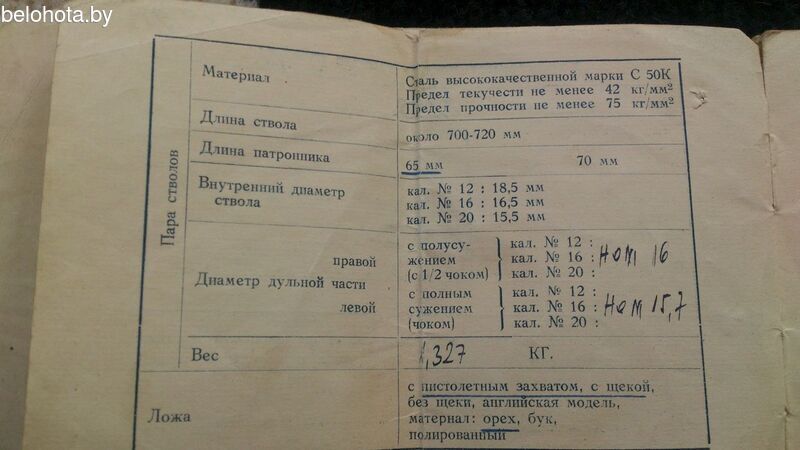 belohota.by
Пара стволов
Материал
Сталь высококачественной марки С 50К
Предел текучести не менее 42 кг/мм²
Предел прочности не менее 75 кг/мм²
Длина ствола
около 700-720 мм
Длина патронника
65 мм 70 мм
Внутренний диаметр
ствола
кал. № 12 : 18,5 мм
кал. № 16 : 16,5 мм
кал. № 20 : 15,5 мм
Диаметр дульной части
правой
с полусу-
жением
(с 1/2 чоком)
кал. № 12 :
кал. № 16 : ном 16
кал. № 20 :
левой
с полным
сужением
(чоком)
кал. № 12 :
кал. № 16 : ном 15,7
кал. № 20 :
Вес
1,327 КГ.
Ложа
с пистолетным захватом, с щекой,
без щеки, английская модель,
материал: орех, бук,
полированный